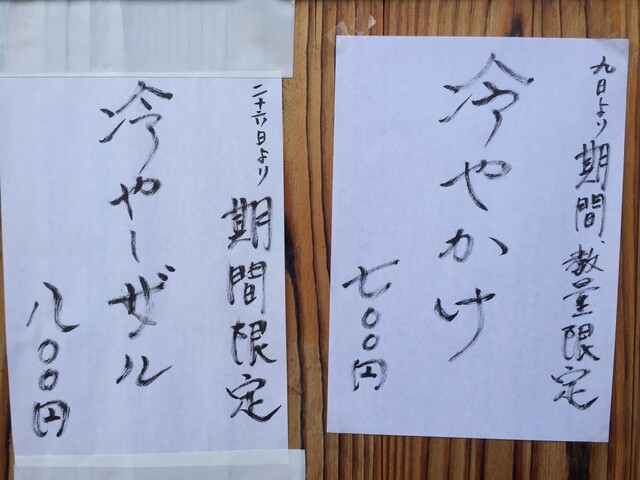 九日より期間、数量限定
冷やかけ
七〇〇円
二十六日より 期間限定
冷やしザル
八〇〇円